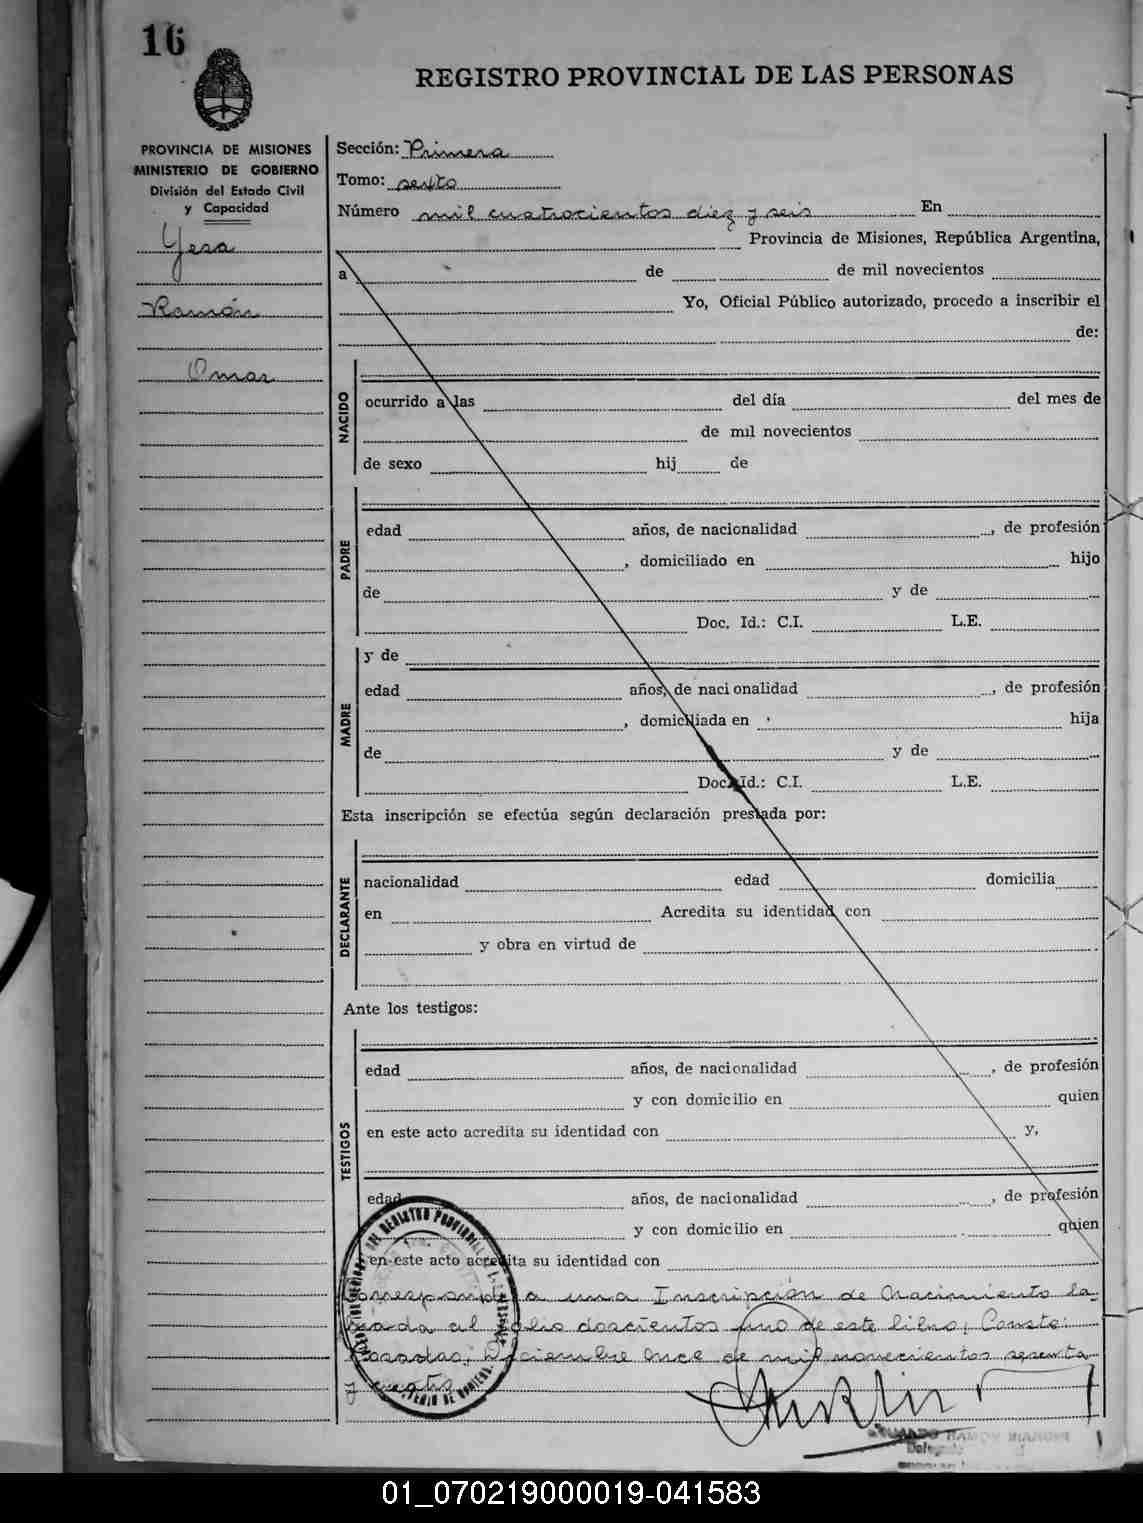 16
REGISTRO PROVINCIAL DE LAS PERSONAS
PROVINCIA DE MISIONES
MINISTERIO DE GOBIERNO
División del Estado Civil
y Capacidad
Yesa
Ramón
Omar
Sección: Primera
Tomo: sexto
Número mil cuatrocientos diez y seis En
Provincia de Misiones, República Argentina,
a de de mil novecientos
Yo, Oficial Público autorizado, procedo a inscribir el
de:
NACIDO
ocurrido a las del día del mes de
de mil novecientos
de sexo hij de
PADRE
edad años, de nacionalidad , de profesión
, domiciliado en hijo
de y de
Doc. Id.: C.I. L.E.
MADRE
y de
edad años, de nacionalidad , de profesión
, domiciliada en hija
de y de
Doc. Id.: C.I. L.E.
Esta inscripción se efectúa según declaración prestada por:
DECLARANTE
nacionalidad edad domicilia
en Acredita su identidad con
y obra en virtud de
Ante los testigos:
TESTIGOS
edad años, de nacionalidad , de profesión
y con domicilio en quien
en este acto acredita su identidad con y,
edad años, de nacionalidad , de profesión
y con domicilio en quien
en este acto acredita su identidad con
Corresponde a una Inscripción de Nacimiento la-
brada al folio doscientos uno de este libro; Conste:
Posadas, Diciembre once de mil novecientos sesenta
y
REGISTRO PROVINCIAL
RAMON
01_070219000019-041583